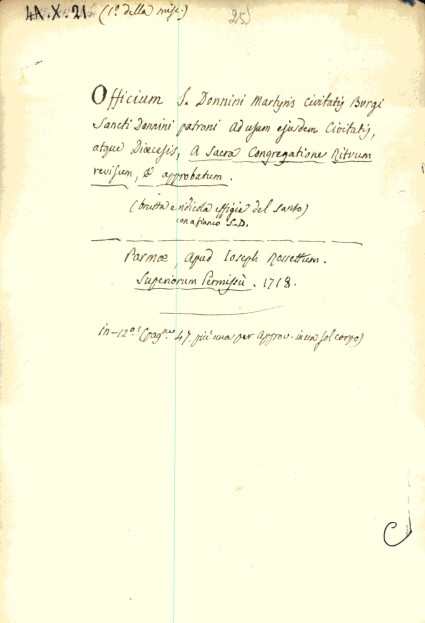 4A.X.21 (1ª della misc.) 25)
Officium S. Donnini Martyris Civitatis Burgi
Sancti Donnini patroni ad usum ejusdem Civitatis,
atque Diœcesis, a Sacra Congregatione Rituum
revisum, & approbatum.
(brutta e ridicola effigie del santo)
con a fianco S. D.
Parmæ, Apud Ioseph Rossettum.
Superiorum Permissu. 1718.
in-12º (pagne 47 più una per Approv. in un sol corpo)